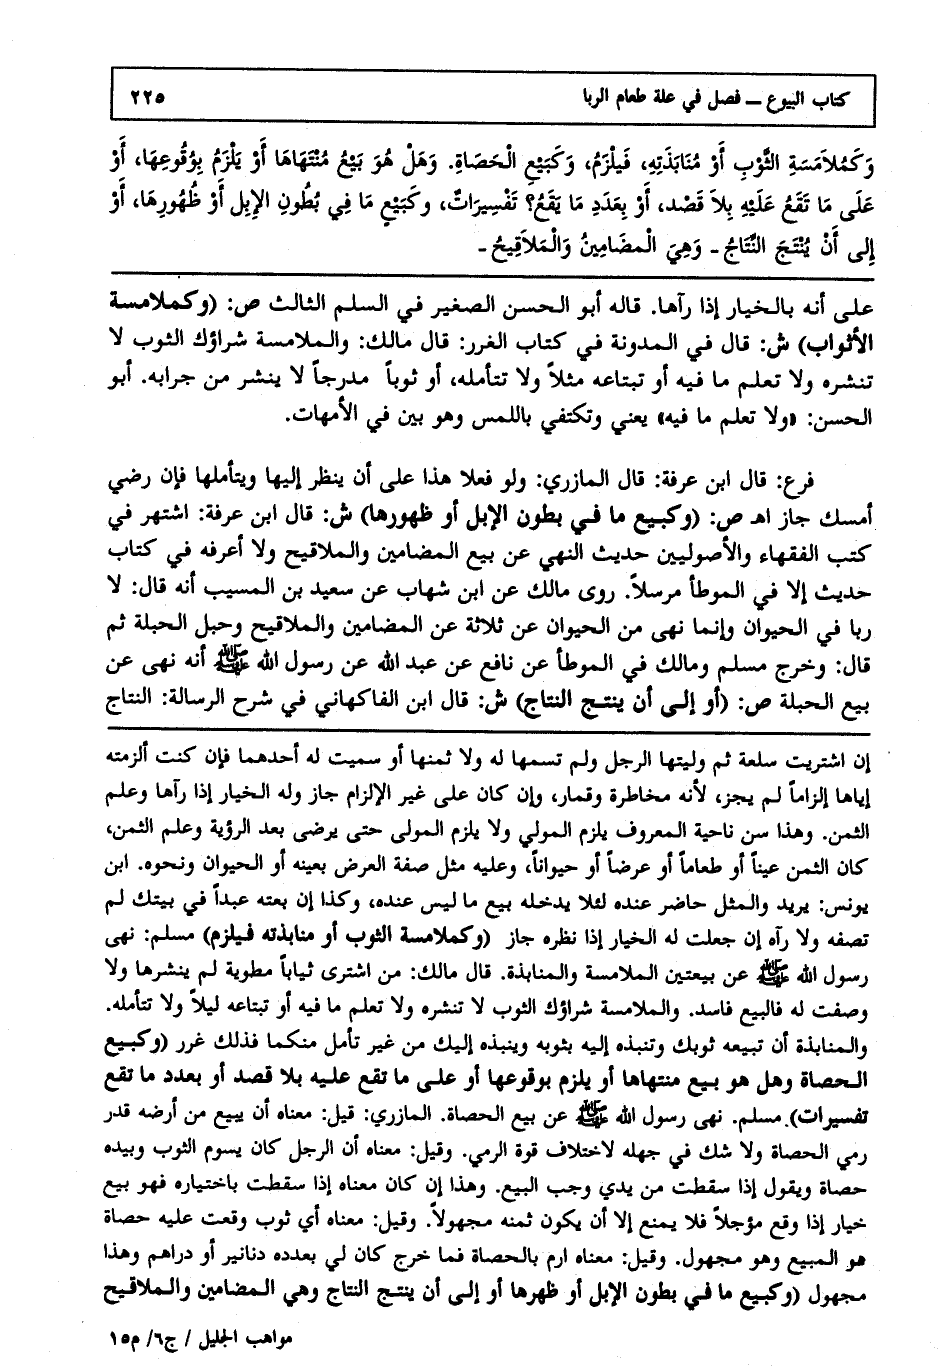 كتاب البيوع ــ فصل في علة طعام الربا
٢٢٥
وَكَمُلاَمَسَةِ الثَّوْبِ أَوْ مُنَابَذَتِهِ، فَيَلْزَمُ، وَكَبَيْعِ الْحَصَاةِ. وَهَلْ هُوَ بَيْعُ مُنْتَهَاهَا أَوْ يَلْزَمُ بِوُقُوعِهَا، أَوْ
عَلَى مَا تَقَعُ عَلَيْهِ بِلاَ قَصْد، أَوْ بِعَدَدِ مَا يَقَعُ؟ تَفْسِيرَاتٌ، وكَبَيْعِ مَا فِي بُطُونِ الإِبِلِ أَوْ ظُهُورِهَا، أَوْ
إِلى أَنْ يُنْتَجَ النِّتَاجُ ـ وَهِيَ الْمضَامِينُ وَالْمَلاَقِيحُ ـ
على أنه بالخيار إذا رآها. قاله أبو الحسن الصغير في السلم الثالث ص: (وكملامسة
الأثواب) ش: قال في المدونة في كتاب الغرر: قال مالك: والملامسة شراؤك الثوب لا
تنشره ولا تعلم ما فيه أو تبتاعه مثلاً ولا تتأمله، أو ثوباً مدرجاً لا ينشر من جرابه. أبو
الحسن: «ولا تعلم ما فيه» يعني وتكتفي باللمس وهو بين في الأمهات.
فرع: قال ابن عرفة: قال المازري: ولو فعلا هذا على أن ينظر إليها ويتأملها فإن رضي
أمسك جاز اهـ ص: (وكبيع ما في بطون الإبل أو ظهورها) ش: قال ابن عرفة: اشتهر في
كتب الفقهاء والأصوليين حديث النهي عن بيع المضامين والملاقيح ولا أعرفه في كتاب
حديث إلا في الموطأ مرسلاً. روى مالك عن ابن شهاب عن سعيد بن المسيب أنه قال: لا
ربا في الحيوان وإنما نهى من الحيوان عن ثلاثة عن المضامين والملاقيح وحبل الحبلة ثم
قال: وخرج مسلم ومالك في الموطأ عن نافع عن عبد الله عن رسول الله ﷺ أنه نهى عن
بيع الحبلة ص: (أو إلى أن ينتج النتاج) ش: قال ابن الفاكهاني في شرح الرسالة: النتاج
إن اشتريت سلعة ثم وليتها الرجل ولم تسمها له ولا ثمنها أو سميت له أحدهما فإن كنت ألزمته
إياها إلزاماً لم يجز، لأنه مخاطرة وقمار، وإن كان على غير الإلزام جاز وله الخيار إذا رآها وعلم
الثمن. وهذا سن ناحية المعروف يلزم المولي ولا يلزم المولى حتى يرضى بعد الرؤية وعلم الثمن،
كان الثمن عيناً أو طعاماً أو عرضاً أو حيواناً، وعليه مثل صفة العرض بعينه أو الحيوان ونحوه. ابن
يونس: يريد والمثل حاضر عنده لئلا يدخله بيع ما ليس عنده، وكذا إن بعته عبداً في بيتك لم
تصفه ولا رآه إن جعلت له الخيار إذا نظره جاز (وكملامسة الثوب أو منابذته فيلزم) مسلم: نهى
رسول الله ﷺ عن بيعتين الملامسة والمنابذة. قال مالك: من اشترى ثياباً مطوية لم ينشرها ولا
وصفت له فالبيع فاسد. والملامسة شراؤك الثوب لا تنشره ولا تعلم ما فيه أو تبتاعه ليلاً ولا تتأمله.
والمنابذة أن تبيعه ثوبك وتنبذه إليه بثوبه وينبذه إليك من غير تأمل منكما فذلك غرر (وكبيع
الحصاة وهل هو بيع منتهاها أو يلزم بوقوعها أو على ما تقع عليه بلا قصد أو بعدد ما تقع
تفسيرات). مسلم. نهى رسول الله ﷺ عن بيع الحصاة. المازري: قيل: معناه أن يبيع من أرضه قدر
رمي الحصاة ولا شك في جهله لاختلاف قوة الرمي. وقيل: معناه أن الرجل كان يسوم الثوب وبيده
حصاة ويقول إذا سقطت من يدي وجب البيع. وهذا إن كان معناه إذا سقطت باختياره فهو بيع
خيار إذا وقع مؤجلاً فلا يمنع إلا أن يكون ثمنه مجهولاً. وقيل: معناه أي ثوب وقعت عليه حصاة
هو المبيع وهو مجهول. وقيل: معناه ارم بالحصاة فما خرج كان لي بعدده دنانير أو دراهم وهذا
مجهول (وكبيع ما في بطون الإبل أو ظهرها أو إلى أن ينتج النتاج وهي المضامين والملاقيح
مواهب الجليل / ج٦/ م١٥